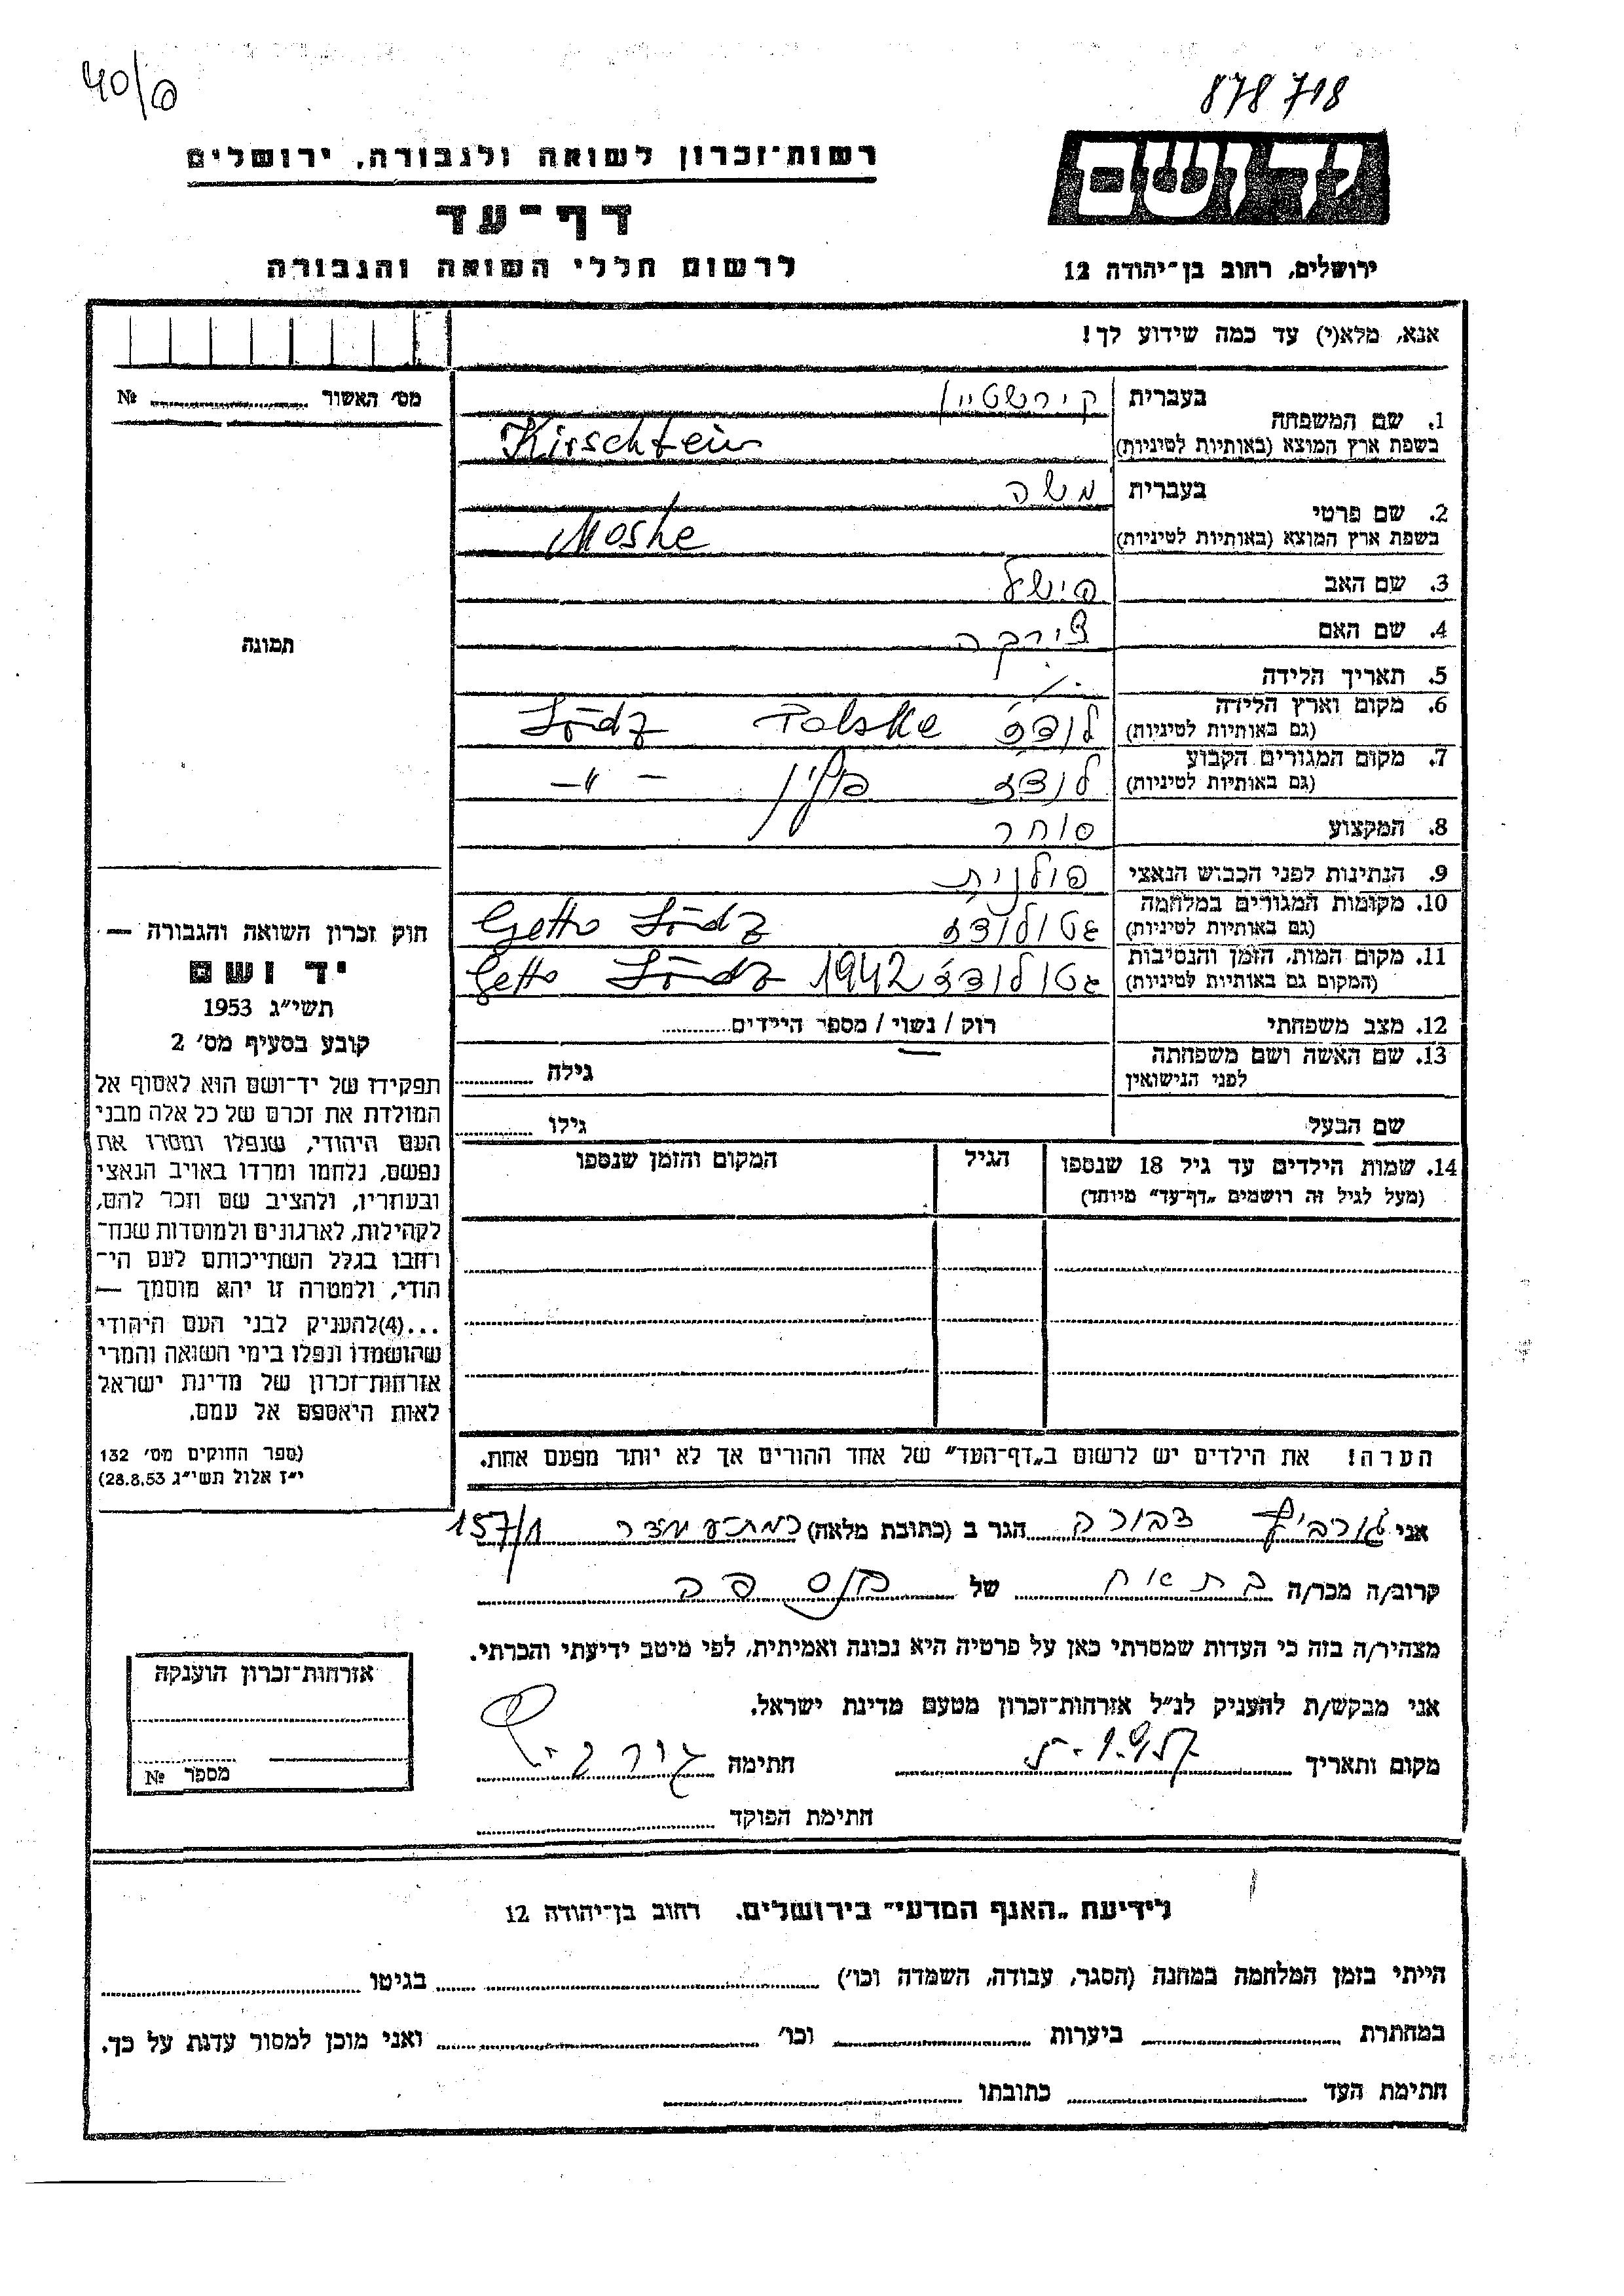 40/6
878718
רשות־זכרון לשואה ולגבורה, ירושלים
יד ושם
דף־עד
לרשום חללי השואה והגבורה
ירושלים, רחוב בן־יהודה 12
אנא, מלא(י) עד כמה שידוע לך!
מס׳ האשור №
1. שם המשפחה
בעברית קירשטיין
בשפת ארץ המוצא (באותיות לטיניות) Kirschtein
2. שם פרטי
בעברית משה
בשפת ארץ המוצא (באותיות לטיניות) Moshe
3. שם האב פישל
4. שם האם צירקה
5. תאריך הלידה
6. מקום וארץ הלידה
(גם באותיות לטיניות) לודז Polske Lódz
7. מקום המגורים הקבוע
(גם באותיות לטיניות) לודז פולין – –״–
8. המקצוע סוחר
9. הנתינות לפני הכבוש הנאצי פולנית
10. מקומות המגורים במלחמה
(גם באותיות לטיניות) גטו לודז Getto Lódz
11. מקום המות, הזמן והנסיבות
(המקום גם באותיות לטיניות) גטו לודז 1942 Getto Lódz
12. מצב משפחתי רוק / נשוי / מספר הילדים
13. שם האשה ושם משפחתה
לפני הנישואין גילה
שם הבעל גילו
14. שמות הילדים עד גיל 18 שנספו
(מעל לגיל זה רושמים „דף־עד״ מיוחד)
הגיל
המקום והזמן שנספו
הערה! את הילדים יש לרשום ב„דף־העד״ של אחד ההורים אך לא יותר מפעם אחת.
תמונה
חוק זכרון השואה והגבורה —
יד ושם
תשי״ג 1953
קובע בסעיף מס׳ 2
תפקידו של יד־ושם הוא לאסוף אל
המולדת את זכרם של כל אלה מבני
העם היהודי, שנפלו ומסרו את
נפשם, נלחמו ומרדו באויב הנאצי
ובעוזריו, ולהציב שם וזכר להם,
לקהילות, לארגונים ולמוסדות שנח־
רחבו בגלל השתייכותם לעם הי־
הודי, ולמטרה זו יהא מוסמך —
...(4)להעניק לבני העם היהודי
שהושמדו ונפלו בימי השואה והמרי
אזרחות־זכרון של מדינת ישראל
לאות היאספם אל עמם.
(ספר החוקים מס׳ 132
י״ז אלול תשי״ג 28.8.53)
אני צבורה הגר ב (כתובת מלאה) 157/1
קרוב/ה מכר/ה בת אח של
מצהיר/ה בזה כי העדות שמסרתי כאן על פרטיה היא נכונה ואמיתית, לפי מיטב ידיעתי והכרתי.
אני מבקש/ת להעניק לנ״ל אזרחות־זכרון מטעם מדינת ישראל.
מקום ותאריך חתימה
חתימת הפוקד
אזרחות־זכרון הוענקה
מספר №
לידיעת „האגף המדעי״ בירושלים. רחוב בן־יהודה 12
הייתי בזמן המלחמה במחנה (הסגר, עבודה, השמדה וכו׳) בגיטו
במחתרת ביערות וכו׳ ואני מוכן למסור עדות על כך.
חתימת העד כתובתו